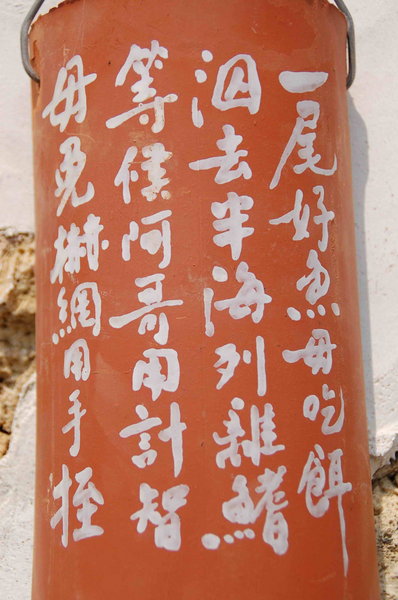 一尾好魚毋吃餌
泅去半海列雞鰭
等候阿哥用計智
毋免網用手挃